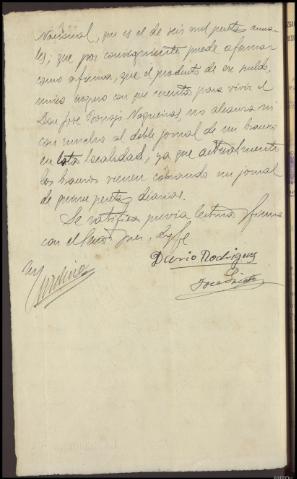 Nacional, que es el de seis mil pesetas anua-
les; que por consiguiente puede afirmar
como afirma, que el producto de ese sueldo,
único seguro con que cuenta para vivir el
Don José Nogueiras, no alcanza ni
con mucho al doble jornal de un bracero
en esta localidad, ya que actualmente
los braceros vienen cobrando un jornal
de quince pesetas diarias.
Se ratifica previa lectura y firma
con el Señor Juez, doy fe
Dario Rodriguez